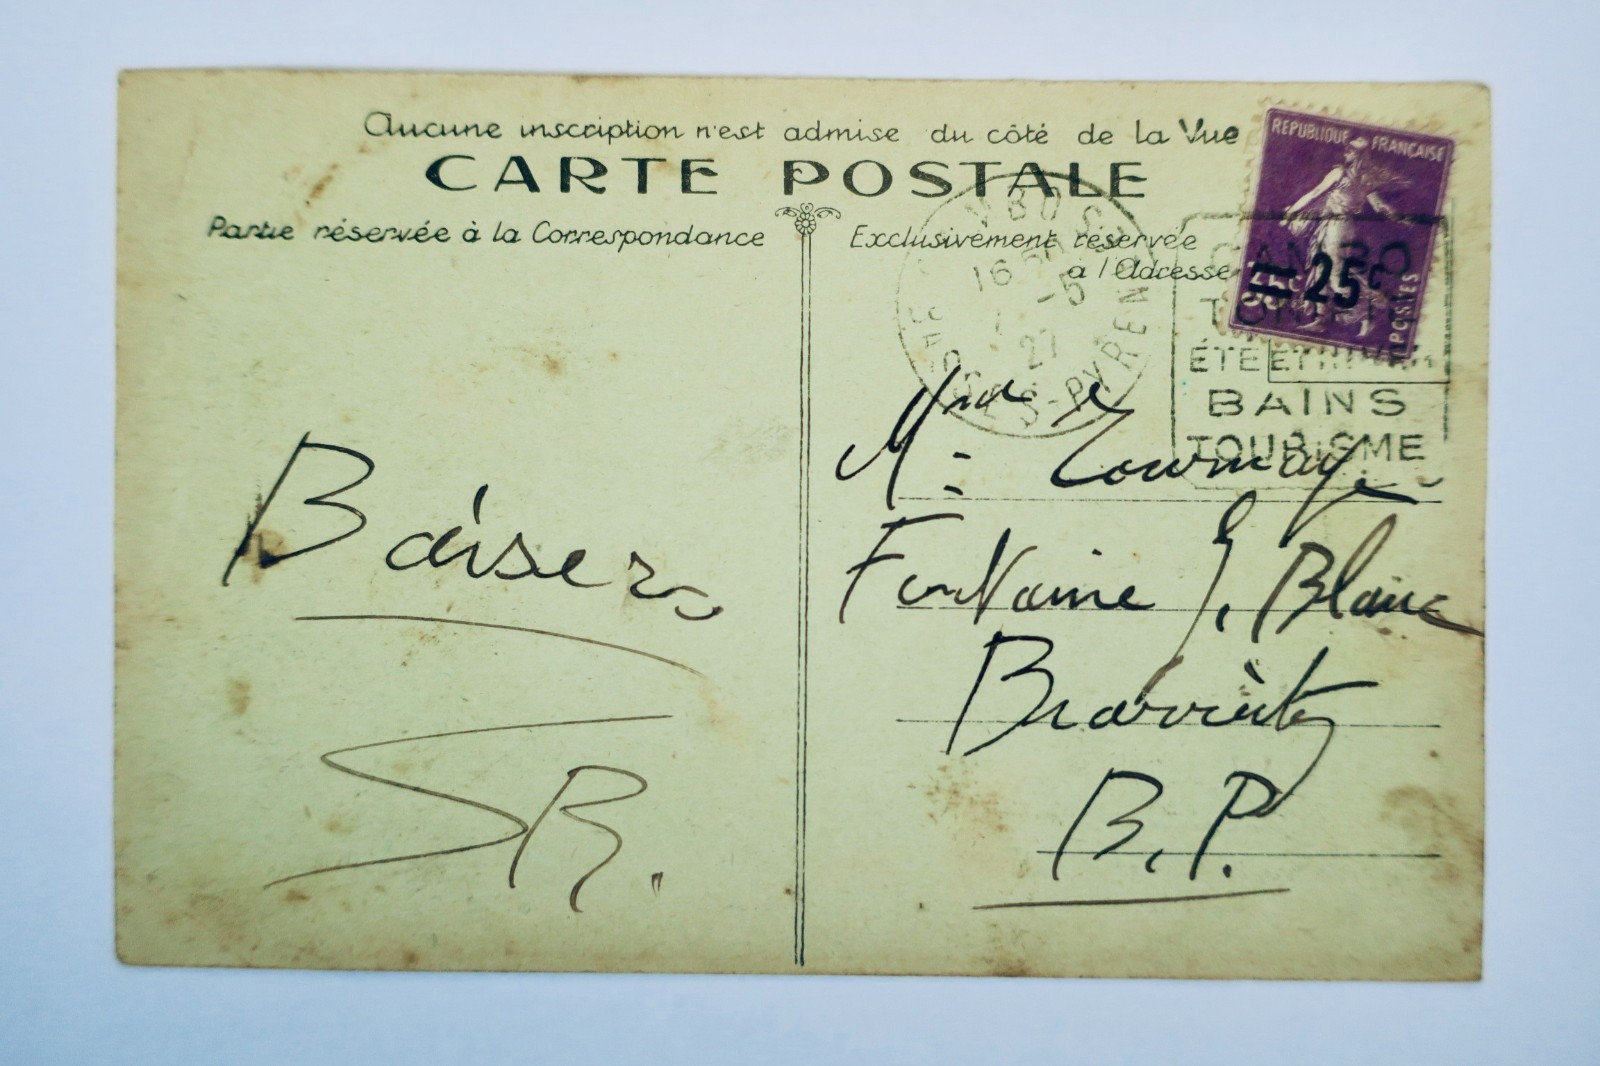 Aucune inscription n'est admise du côté de la Vue
CARTE POSTALE
Partie réservée à la Correspondance
Exclusivement réservée
a l'Adresse
REPUBLIQUE FRANÇAISE
25c
POSTES
16
-5
27
SSES-PYREN
CAMBO
ÉTÉ ET HIVER
BAINS
TOURISME
Baisers
SR.
Mme Tournay
Fontaine E. Blanc
Biarritz
B.P.